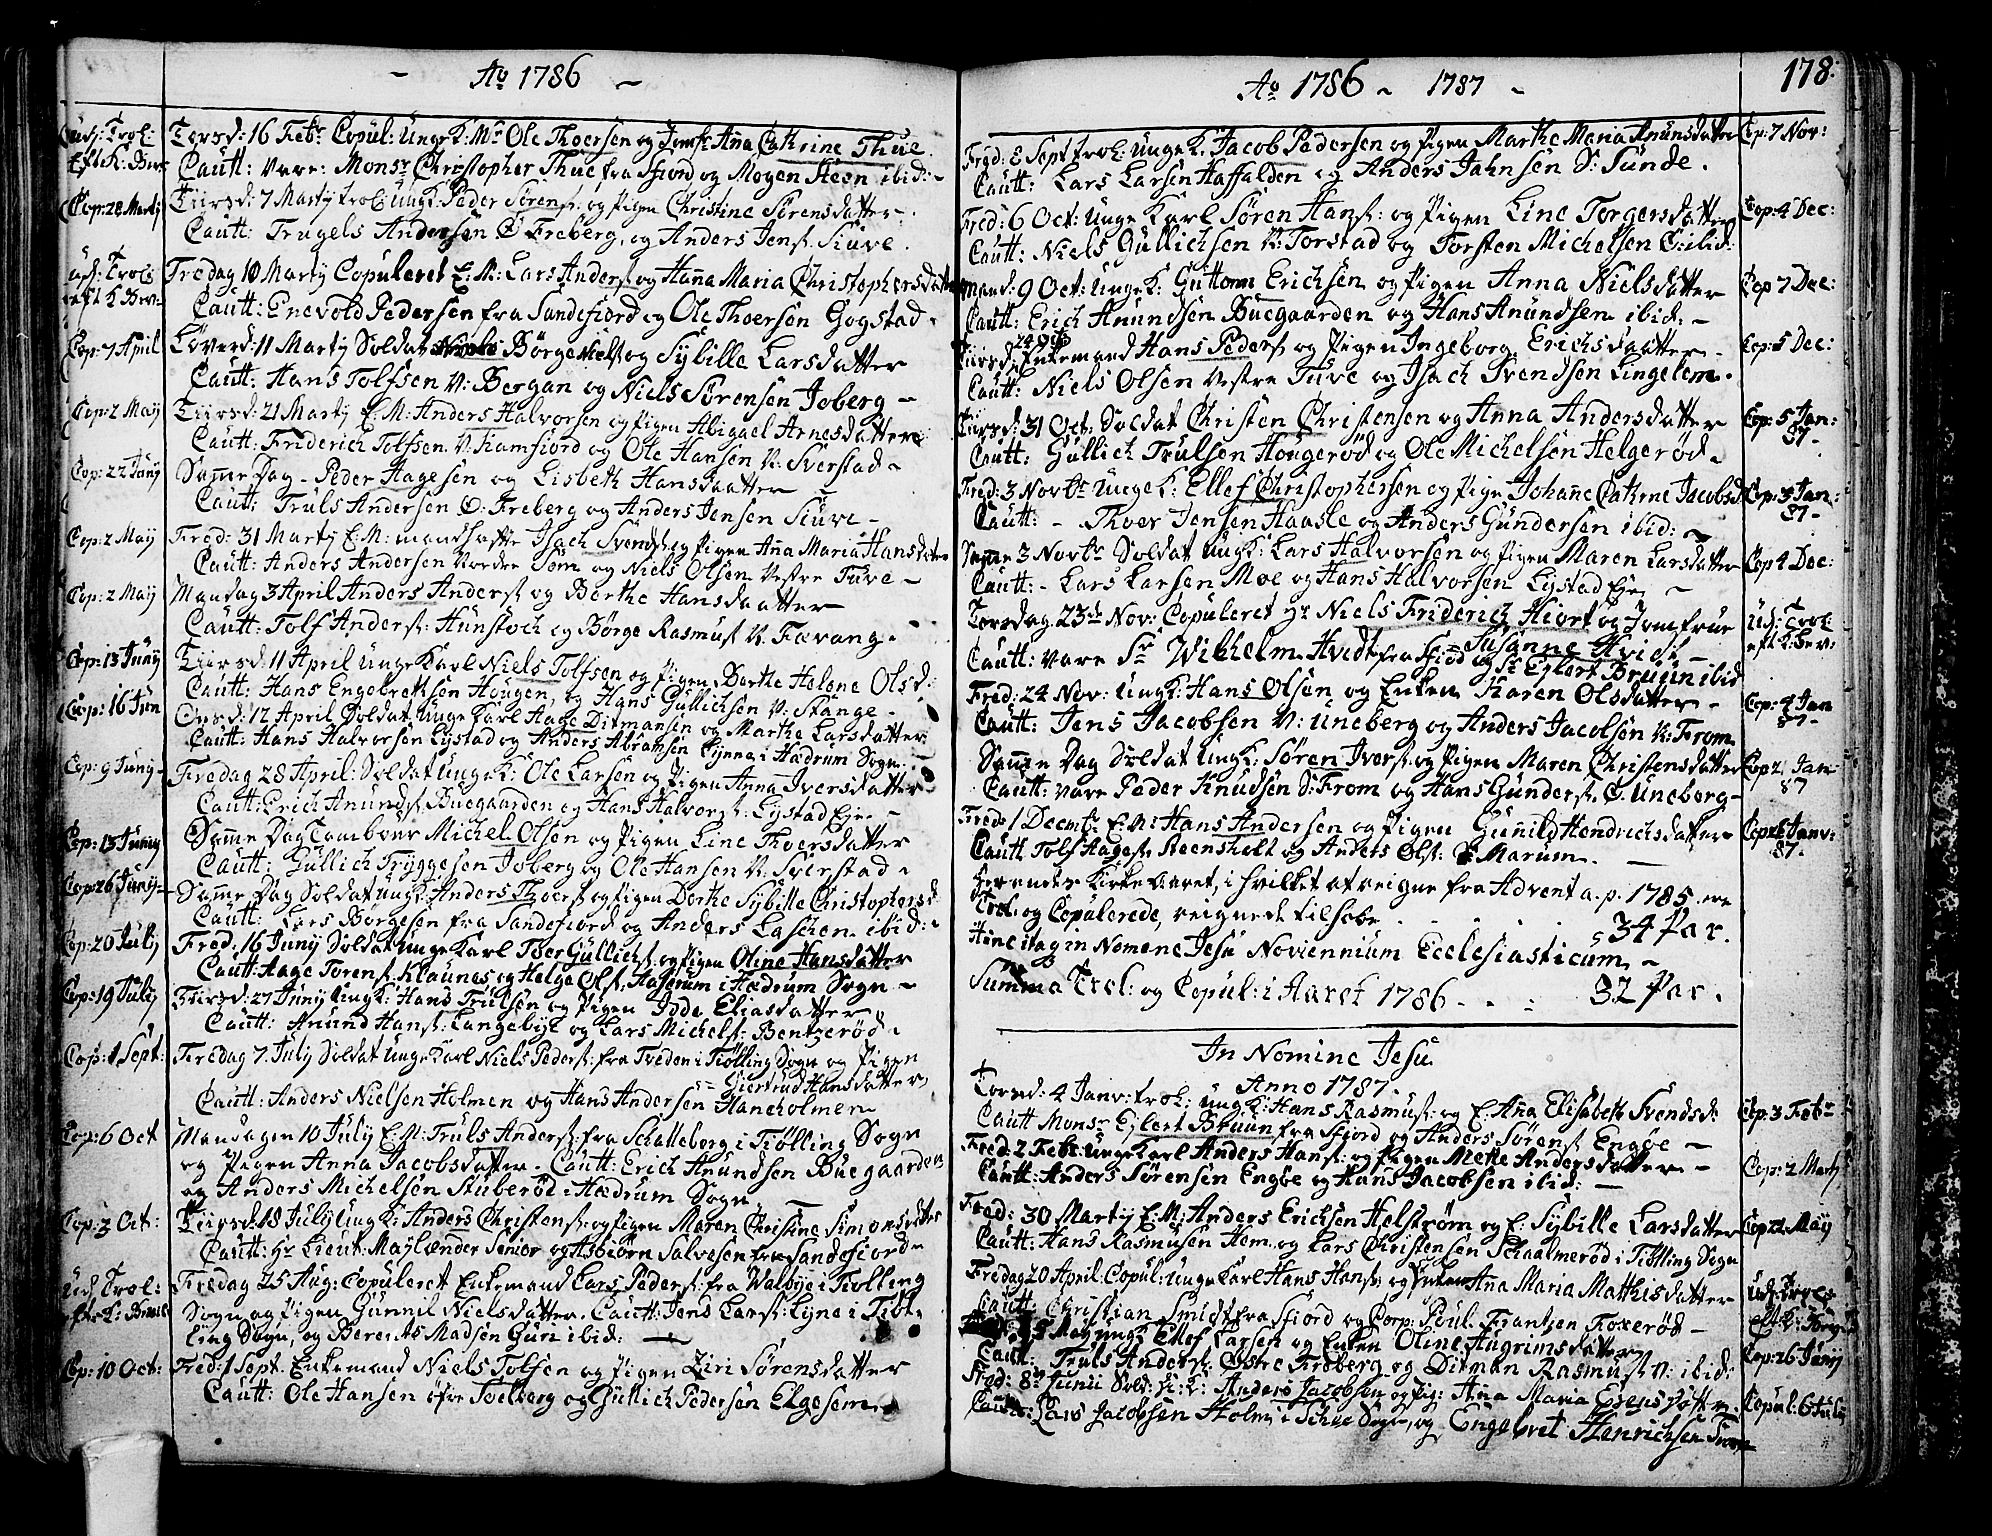 Ao 1786
ud: Trol: Torsd: 16 Febr Copul: Ungk: Mr Ole Thoersen og Jomfr Aña Cathrine Thue
eft K: Bev: Cautt: vare: Monsr Christopher Thue fra Sfiord og Mogen Steen ibid:
Cop: 28 Martj Tiirsd: 7 Martj trol: Ungk: Peder Sörens: og Pigen Christine Sörensdatter
Cautt: Trugels Andersen Ö Freberg, og Anders Jens: Siuve.
ud: Trol Fredag 10 Martj Copuleret E: M: Lars Anders: og Haña Maria Christophersdatter
eft K Bev: Cautt: Enevold Pedersen fra Sandefiord og Ole Thoersen Gogstad.
Cop: 7 April Löverd: 11 Martj Soldat Börge Niels: og Sybille Larsdatter
Cautt: Hans Tolfsen N: Bergan og Niels Sörensen Joberg
Cop: 2 Maij Tiirsd: 21 Martj E: M: Anders Halvorsen og Pigen Abigael Arnesdatter
Cautt: Friderich Tolfsen N: Kamfiord og Ole Hansen N: Sverstad
Cop: 22 Junij Samme Dag Peder Hagesen og Lisbeth Hansdaatter
Cautt: Truls Andersen Ö: Freberg og Anders Jensen Siuve
Cop: 2 Maij Fred: 31 Martj E: M: mandhafte Isach Svends: og Pigen Aña Maria Hansdatter
Cautt: Anders Andersen Nordre Föm og Niels Olsen Vestre Tuve
Cop: 2 Maij Mandag 3 April Anders Anders: og Berthe Hansdaatter
Cautt: Tolf Anders: Hunstoch og Börge Rasmus: N: Fævang
Cop: 13 Junij Tiirsd: 11 April Unge Karl Niels Tolfsen og Pigen Dorthe Helene Olsd:
Cautt: Hans Engebretksen Hougen, og Hans Gullichsen N: Stange
Cop: 16 Jun Onsd: 12 April Soldat Unge Karl Aage Ditmansen og Marthe Larsdatter
Cautt: Hans Halvorsen Lystad og Anders Abramsen Lynne i Hædrum Sogn
Cop: 9 Junij Fredag 28 April: Soldat Ungk: Ole Larsen og Pigen Anna Iversdatter
Cautt: Erich Anunds: Buegaarden og Hans Halvors: Lystad Eje
Cop: 13 Junij Samme Dag Tambour Michel Olsen og Pigen Line Thoersdatter
Cautt: Gullich Tryggesen Joberg og Ole Hansen N: Sverstad
Cop: 26 Junij Samme Dag Soldat Ungk: Anders Thoers: og Pigen Dorthe Sybille Christophersd:
Cautt: Lars Börgesen fra Sandefiord og Anders Laschen ibid:
Cop: 20 Julij Fred: 16 Junij Soldat Unge Karl Thoer Gullichs: og Pigen Oline Hansdatter
Cautt: Aage Torens: Klaunæs og Helge Ols: Haserum i Hædrum Sogn
Cop: 19 Julij Tiirsd: 27 Junij Ungk: Hans Trulsen og Pigen Idde Eliasdatter
Cautt: Anund Hans: Langebye og Lars Michels: Bentzeröd
Cop: 1 Sept: Fredag 7 Julij Soldat Unge Karl Niels Peders: fra Tveden i Tiölling Sogn og Pigen
Giertrud Hansdatter
Cautt: Anders Nielsen Holmen og Hans Andersen Haneholmen
Cop: 6 Oct Mandagen 10 Julij E: M: Truls Anders: fra Schatteborg i Tiölling Sogn
og Pigen Anna Jacobsdatter. Cautt: Erich Anundsen Buegaarden
og Anders Michelsen Stuberöd i Hædrum Sogn
Cop: 3 Oct: Tiirsd: 18 Julij Ungk: Anders Christens: og Pigen Maren Christine Simonsdatter
Cautt: Hr Lieut: Maylænder Senior og Asbiörn Salvesen fra Sandefiord
ud: Trol: Fredag 25 Aug: Copuleret Enkemand Lars Peders: fra Walbye i Tiölling
eft K: Bev: Sogn og Pigen Gunnil Nielsdatter. Cautt: Jens Lars: Lyne i Tiöl-
ling Sogn, og Berent Madsen Guri ibid:
Cop: 10 Oct: Fred: 1 Sept: Enkemand Niels Tolfsen og Pigen Ziri Sörensdatter
Cautt: Ole Hansen öfre Toelberg og Gullich Pedersen Elgesem
Ao 1786 1787
178
Fred: 8 Sept trol: Unge K: Jacob Pedersen og Pigen Marthe Maria Anunsdatter Cop: 7 Nov:
Cautt: Lars Larsen Haffalden og Anders Jahnsen S: Sunde.
Fred: 6 Oct: Unge Karl Sören Hans: og Pigen Line Torgersdatter Cop: 4 Dec:
Cautt: Niels Gullichsen N: Torstad og Torsten Michelsen C: ibid:
Mand: 9 Oct: Ungk: Guttorm Erichsen og Pigen Anna Nielsdatter Cop 7 Dec:
Cautt: Erich Anundsen Buegaarden og Hans Anundsen ibid:
24 Oct
Tiirsd: Enkemand Hans Peders: og Pigen Ingeborg Erichsdaatter Cop: 5 Dec:
Cautt: Niels Olsen Vestre Tuve og Isach Svendsen Lingelem.
Tiirsd: 31 Oct: Soldat Christen Christensen og Anna Andersdatter Cop: 5 Jan: 87
Cautt: Gullich Trulsen Hougeröd og Ole Michelsen Helgeröd
Fred: 3 Novbr Unge K: Ellef Christophersen og Pige Johañe Cathrne Jacobsd Cop: 3 Jan: 87
Cautt: Thoer Jensen Haasle og Anders Gundersen ibid:
Samme 3 Novbr Soldat Ungk: Lars Halvorsen og Pigen Maren Larsdatter Cop 4 Dec:
Cautt: Lars Larsen Moe og Hans Halvorsen Lystad Eje
Torsdag 23de Nov: Copuleret Hr Niels Friderich Hiort og Jomfrue ud: Trol:
Susanne Hvidt eft K: Bev:
Cautt: vare Sr Wilhelm Hvidt fra Sfiord og Sr Ejlert Bruun ibid
Fred: 24 Nov: Ungk: Hans Olsen og Enken Karen Olsdatter Cop: 4 Jan 87
Cautt: Jens Jacobsen N: Uneberg og Anders Jacobsen N: From
Samme Dag Soldat Ungk: Sören Ivers: og Pigen Maren Christensdatter Cop 2 Jan 87
Cautt: vare Peder Knudsen S: From og Hans Gunders: Ö: Uneberg
Fred: 1 Decmbr E: M: Hans Andersen og Pigen Gunild Hendrichsdatter Cop: Janv: 87
Cautt Tolf Aages: Steensholt og Anders Ols: Marum.
herender Kirke Aaret, i hvilket at reigne fra Advent a. p. 1785 ere
Trol: og Copulerede, reignede tilhobe 34 Par.
Hinc itag in Nomine Jesu Noviennium Ecclesiasticum
Summa Trol: og Copul: i Aaret 1786 32 Par.
In Nomine Jesu
Anno 1787
Torsd: 4 Janv: trol: ungk: Hans Rasmus: og E: Aña Elisabeth Svendsd: Cop: 3 Febr
Cautt Monsr Ejlert Bruun fra Sfjord og Anders Sörens: Engöe
Fred: 2 Febr: Unge Karl Anders Hans: og Pigen Mette Andersdatter Cop: 2 Martj
Cautt: Anders Sörensen Engöe og Hans Jacobsen ibid:
Fred: 30 Martj E: M: Anders Erichsen Helström og E: Sybille Larsdatter Cop: Maij
Cautt: Hans Rasmusen Hem og Lars Christensen Schaalmeröd i Tiölling Sogn
Fredag 20 April: Copul: Unge Karl Hans Hans: og Enken Aña Maria Matthisdatter ud: Trol:
Cautt: Christian Smidt fra Sfiord og Corp: Poul Frantzen Foxeröd eft K: Bev:
5 Maij Ungk: Ellef Larsen og Enken Oline Augrimsdatter Cop: 26 Junij
Cautt: Truls Anders: Östre Fröberg og Ditman Rasmus: N: ibid:
Fred: 8de Junii Sold: U: K: Anders Jacobsen og Pig: Aña Maria Evensdatter. Copul: 6 Julij
Cautt: Lars Jacobsen Holm i Sogn, og Engebret Henrichsen From